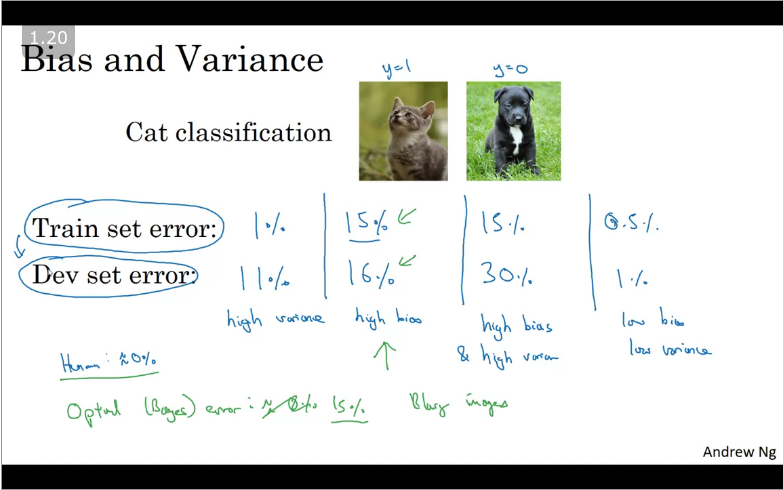 1.20
Bias and Variance
y=1 y=0
Cat classification
Train set error: 1% 15% 15% 0.5%
Dev set error: 11% 16% 30% 1%
high variance high bias high bias low bias
& high varian low variance
Human: ≈0%
Optul (Bayes) error: ≈ 0% 15% Blury images
Andrew Ng